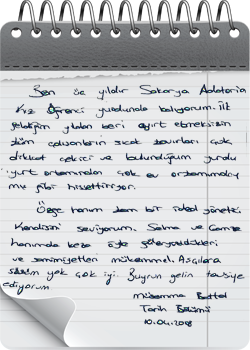 Ben üç yıldır Sakarya Adatoria
Kız Öğrenci yurdunda kalıyorum. İlk
geldiğim yıldan beri ayırt etmeksizin
tüm çalışanların sıcak tavırları çok
dikkat çekici ve bulunduğum yurdu
yurt ortamından çok ev ortamındaymış
gibi hissettiriyor.
Özge hanım tam bir ideal yönetici
Kendisini seviyorum. Selma ve Gamze
hanımında keza öyle
ve samimiyetleri mükemmel. Aşçılara
çok iyi. Buyrun gelin tavsiye
ediyorum
Tarih Bölümü
10.04.2018